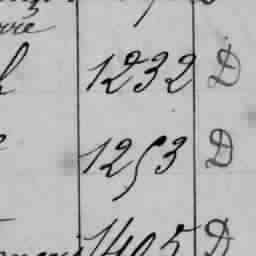 1232 D
1253 D
1405 D